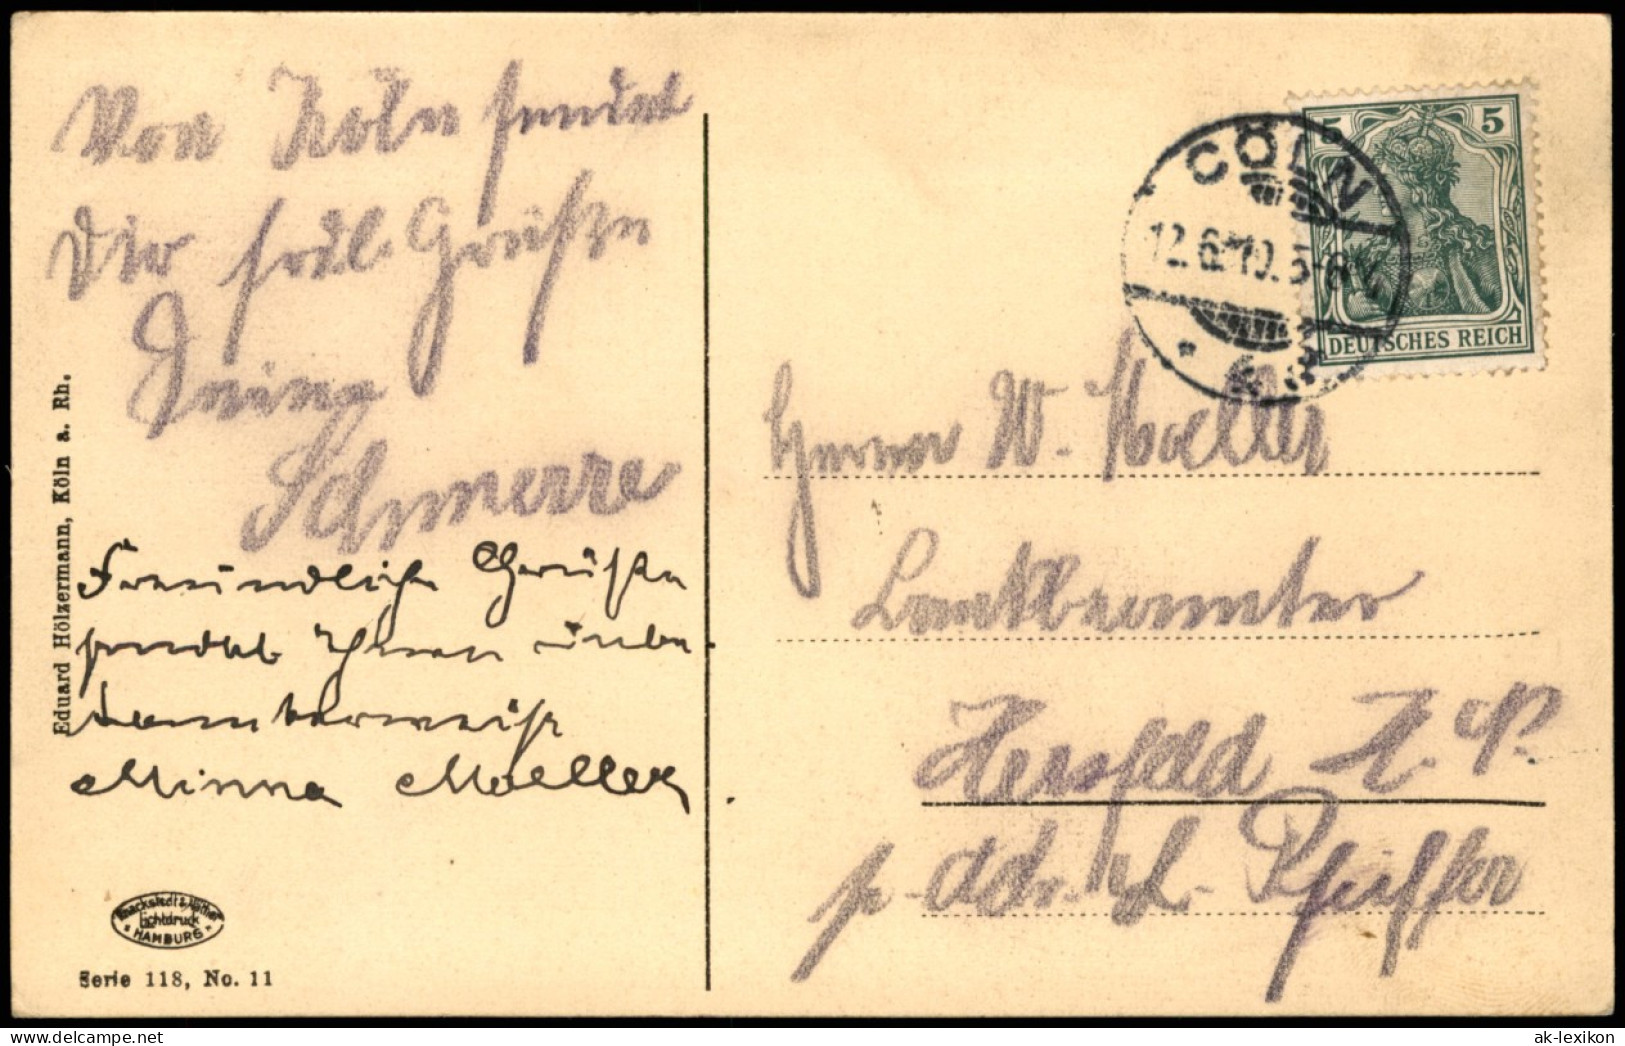 Von Köln sendet
Dir herzl. Grüße
Deine
Freundliche Grüße
sendet Ihnen unbe
kannterweise
Minna Moeller
Eduard Hölzermann, Köln a. Rh.
Knackstedt & Näther
Lichtdruck
HAMBURG
Serie 118, No. 11
CÖLN
12.6.10. 5-6 N.
5 5
DEUTSCHES REICH
Herrn W. Moeller
Bankbeamter
Hersfeld H. N.
p. Adr. H. Pfeiffer
ak-lexikon